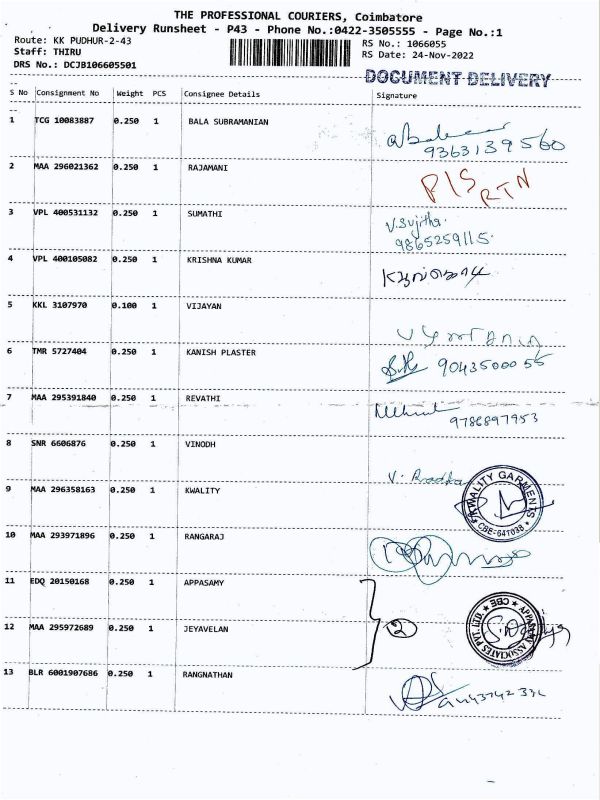 THE PROFESSIONAL COURIERS, Coimbatore
Delivery Runsheet - P43 - Phone No.:0422-3505555 - Page No.:1
Route: KK PUDHUR-2-43
RS No.: 1066055
Staff: THIRU
RS Date: 24-Nov-2022
DRS No.: DCJB106605501
DOCUMENT DELIVERY
S No Consignment No Weight PCS Consignee Details Signature
1 TCG 10083887 0.250 1 BALA SUBRAMANIAN
9363139560
2 MAA 296021362 0.250 1 RAJAMANI P/S RTN
3 VPL 400531132 0.250 1 SUMATHI V.Sujitha
9865259115
4 VPL 400105082 0.250 1 KRISHNA KUMAR
5 KKL 3107970 0.100 1 VIJAYAN
6 TMR 5727404 0.250 1 KANISH PLASTER 9043500055
7 MAA 295391840 0.250 1 REVATHI
9786897953
8 SNR 6606876 0.250 1 VINODH
V. Radha
9 MAA 296358163 0.250 1 KWALITY
KWALITY GARMENTS
CBE-641038
10 MAA 293971896 0.250 1 RANGARAJ
11 EDQ 20150168 0.250 1 APPASAMY
APPASAMY ASSOCIATES PVT. LTD. CBE
12 MAA 295972689 0.250 1 JEYAVELAN 2
13 BLR 6001907686 0.250 1 RANGNATHAN